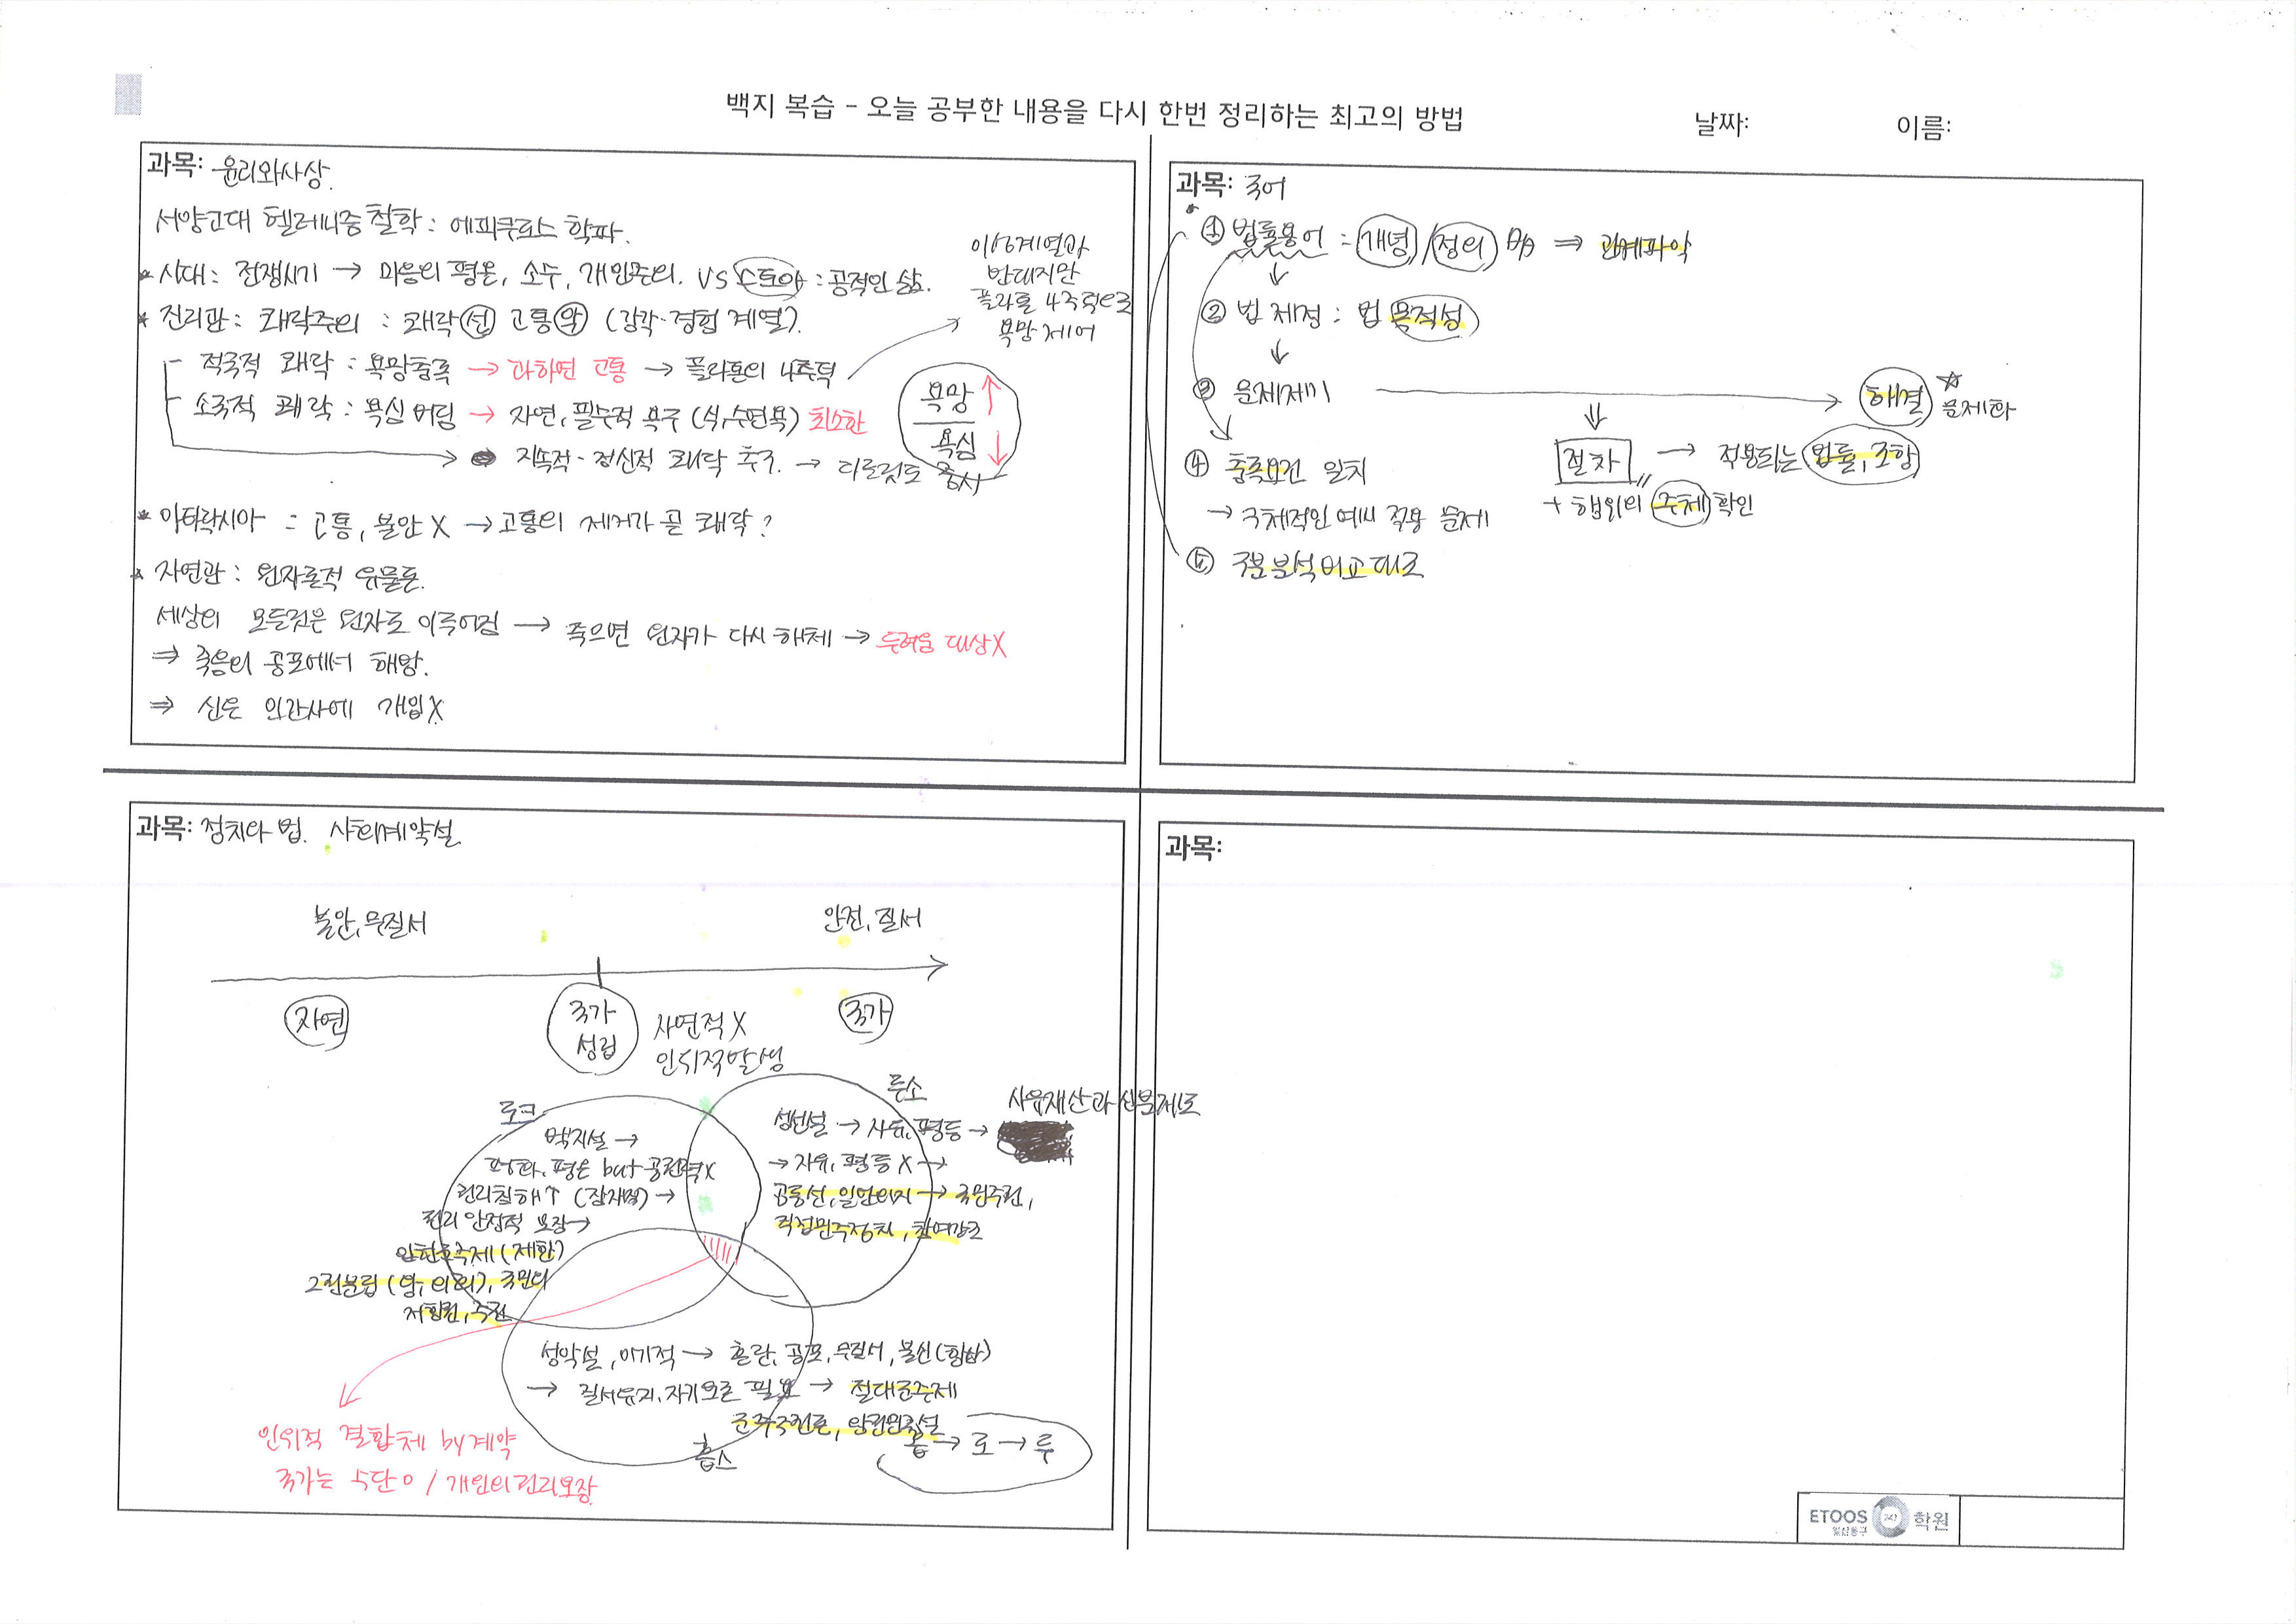 백지 복습 - 오늘 공부한 내용을 다시 한번 정리하는 최고의 방법
날짜:
이름:
과목: 윤리와사상
서양고대 헬레니즘 철학 : 에피쿠로스 학파.
* 시대 : 전쟁시기 → 마음의 평온, 소수, 개인주의. VS 스토아 : 공적인 삶.
* 진리관 : 쾌락주의 : 쾌락 선 고통 악 (감각·경험 계열).
이성계열과
반대지만
플라톤 4주덕으로
욕망제어
- 적극적 쾌락 : 욕망충족 → 과하면 고통 → 플라톤의 4주덕
- 소극적 쾌락 : 욕심 버림 → 자연, 필수적 욕구 (식, 수면욕) 최소한
욕망 ↑
욕심 ↓
→ 지속적·정신적 쾌락 추구. → 다른것도 중시
* 아타락시아 = 고통, 불안 X → 고통의 제거가 곧 쾌락?
* 자연관 : 원자론적 유물론.
세상의 모든것은 원자로 이루어짐 → 죽으면 원자가 다시 해체 → 두려움 대상X
⇒ 죽음의 공포에서 해방.
⇒ 신은 인간사에 개입X
과목: 국어
① 법률용어 : 개념 / 정의 ⇒ 관계파악
② 법 제정 : 법 목적성
③ 문제제기 → 해결 ☆ 문제화
절차 → 적용되는 법률, 조항
+ 행위의 주체 확인
④ 충족요건 일치
→ 구체적인 예시 적용 문제
⑤ 구분 분석 비교 대조
과목: 정치와 법. 사회계약설
불안, 무질서
안전, 질서
자연
국가
성립
자연적 X
인위적발생
국가
로크
백지설 →
평화, 평온 but 공권력X
권리침해↑ (잠재적) →
권리 안정적 보장→
입헌군주제 (제한)
2권분립 (입, 의회), 국민의
저항권, 주권
루소
성선설 → 자유, 평등 →
사유재산과 신분제로
→ 자유, 평등 X →
공동선, 일반의지 → 국민주권,
직접민주정치, 참여강조
성악설, 이기적 → 혼란, 공포, 무질서, 불신 (항상)
→ 질서유지, 자기보존 필요 → 절대군주제
군주주권론, 양권양도설
홉스
홉 → 로 → 루
인위적 결합체 by 계약
국가는 수단 O / 개인의권리보장
과목:
ETOOS 247 학원
일산동구